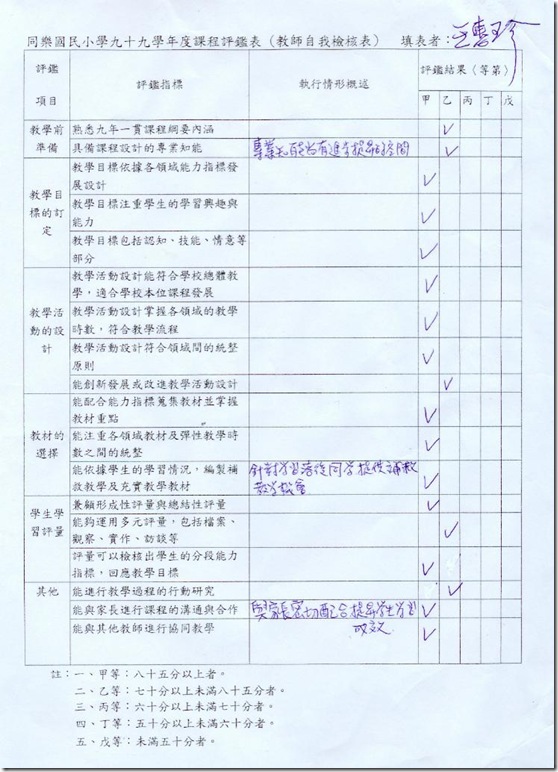 同樂國民小學九十九學年度課程評鑑表（教師自我檢核表） 填表者：王惠珍
評鑑項目 評鑑指標 執行情形概述 評鑑結果（等第）
甲 乙 丙 丁 戊
教學前準備
熟悉九年一貫課程綱要內涵 ✓
具備課程設計的專業知能 專業知能尚有進步提昇的空間 ✓
教學目標的訂定
教學目標依據各領域能力指標發
展設計 ✓
教學目標注重學生的學習興趣與
能力 ✓
教學目標包括認知、技能、情意等
部分 ✓
教學活動的設計
教學活動設計能符合學校總體教
學，適合學校本位課程發展 ✓
教學活動設計掌握各領域的教學
時數，符合教學流程 ✓
教學活動設計符合領域間的統整
原則 ✓
能創新發展或改進教學活動設計 ✓
教材的選擇
能配合能力指標蒐集教材並掌握
教材重點 ✓
能注重各領域教材及彈性教學時
數之間的統整 ✓
能依據學生的學習情況，編製補
救教學及充實教學教材 ✓
針對學習落後同學提供補救
教學機會
學生學習評量
兼顧形成性評量與總結性評量 ✓
能夠運用多元評量，包括檔案、
觀察、實作、訪談等 ✓
評量可以檢核出學生的分段能力
指標，回應教學目標 ✓
其他
能進行教學過程的行動研究 ✓
能與家長進行課程的溝通與合作 ✓
與家長密切配合提昇學生學習
成效
能與其他教師進行協同教學 ✓
註：一、甲等：八十五分以上者。
二、乙等：七十分以上未滿八十五分者。
三、丙等：六十分以上未滿七十分者。
四、丁等：五十分以上未滿六十分者。
五、戊等：未滿五十分者。